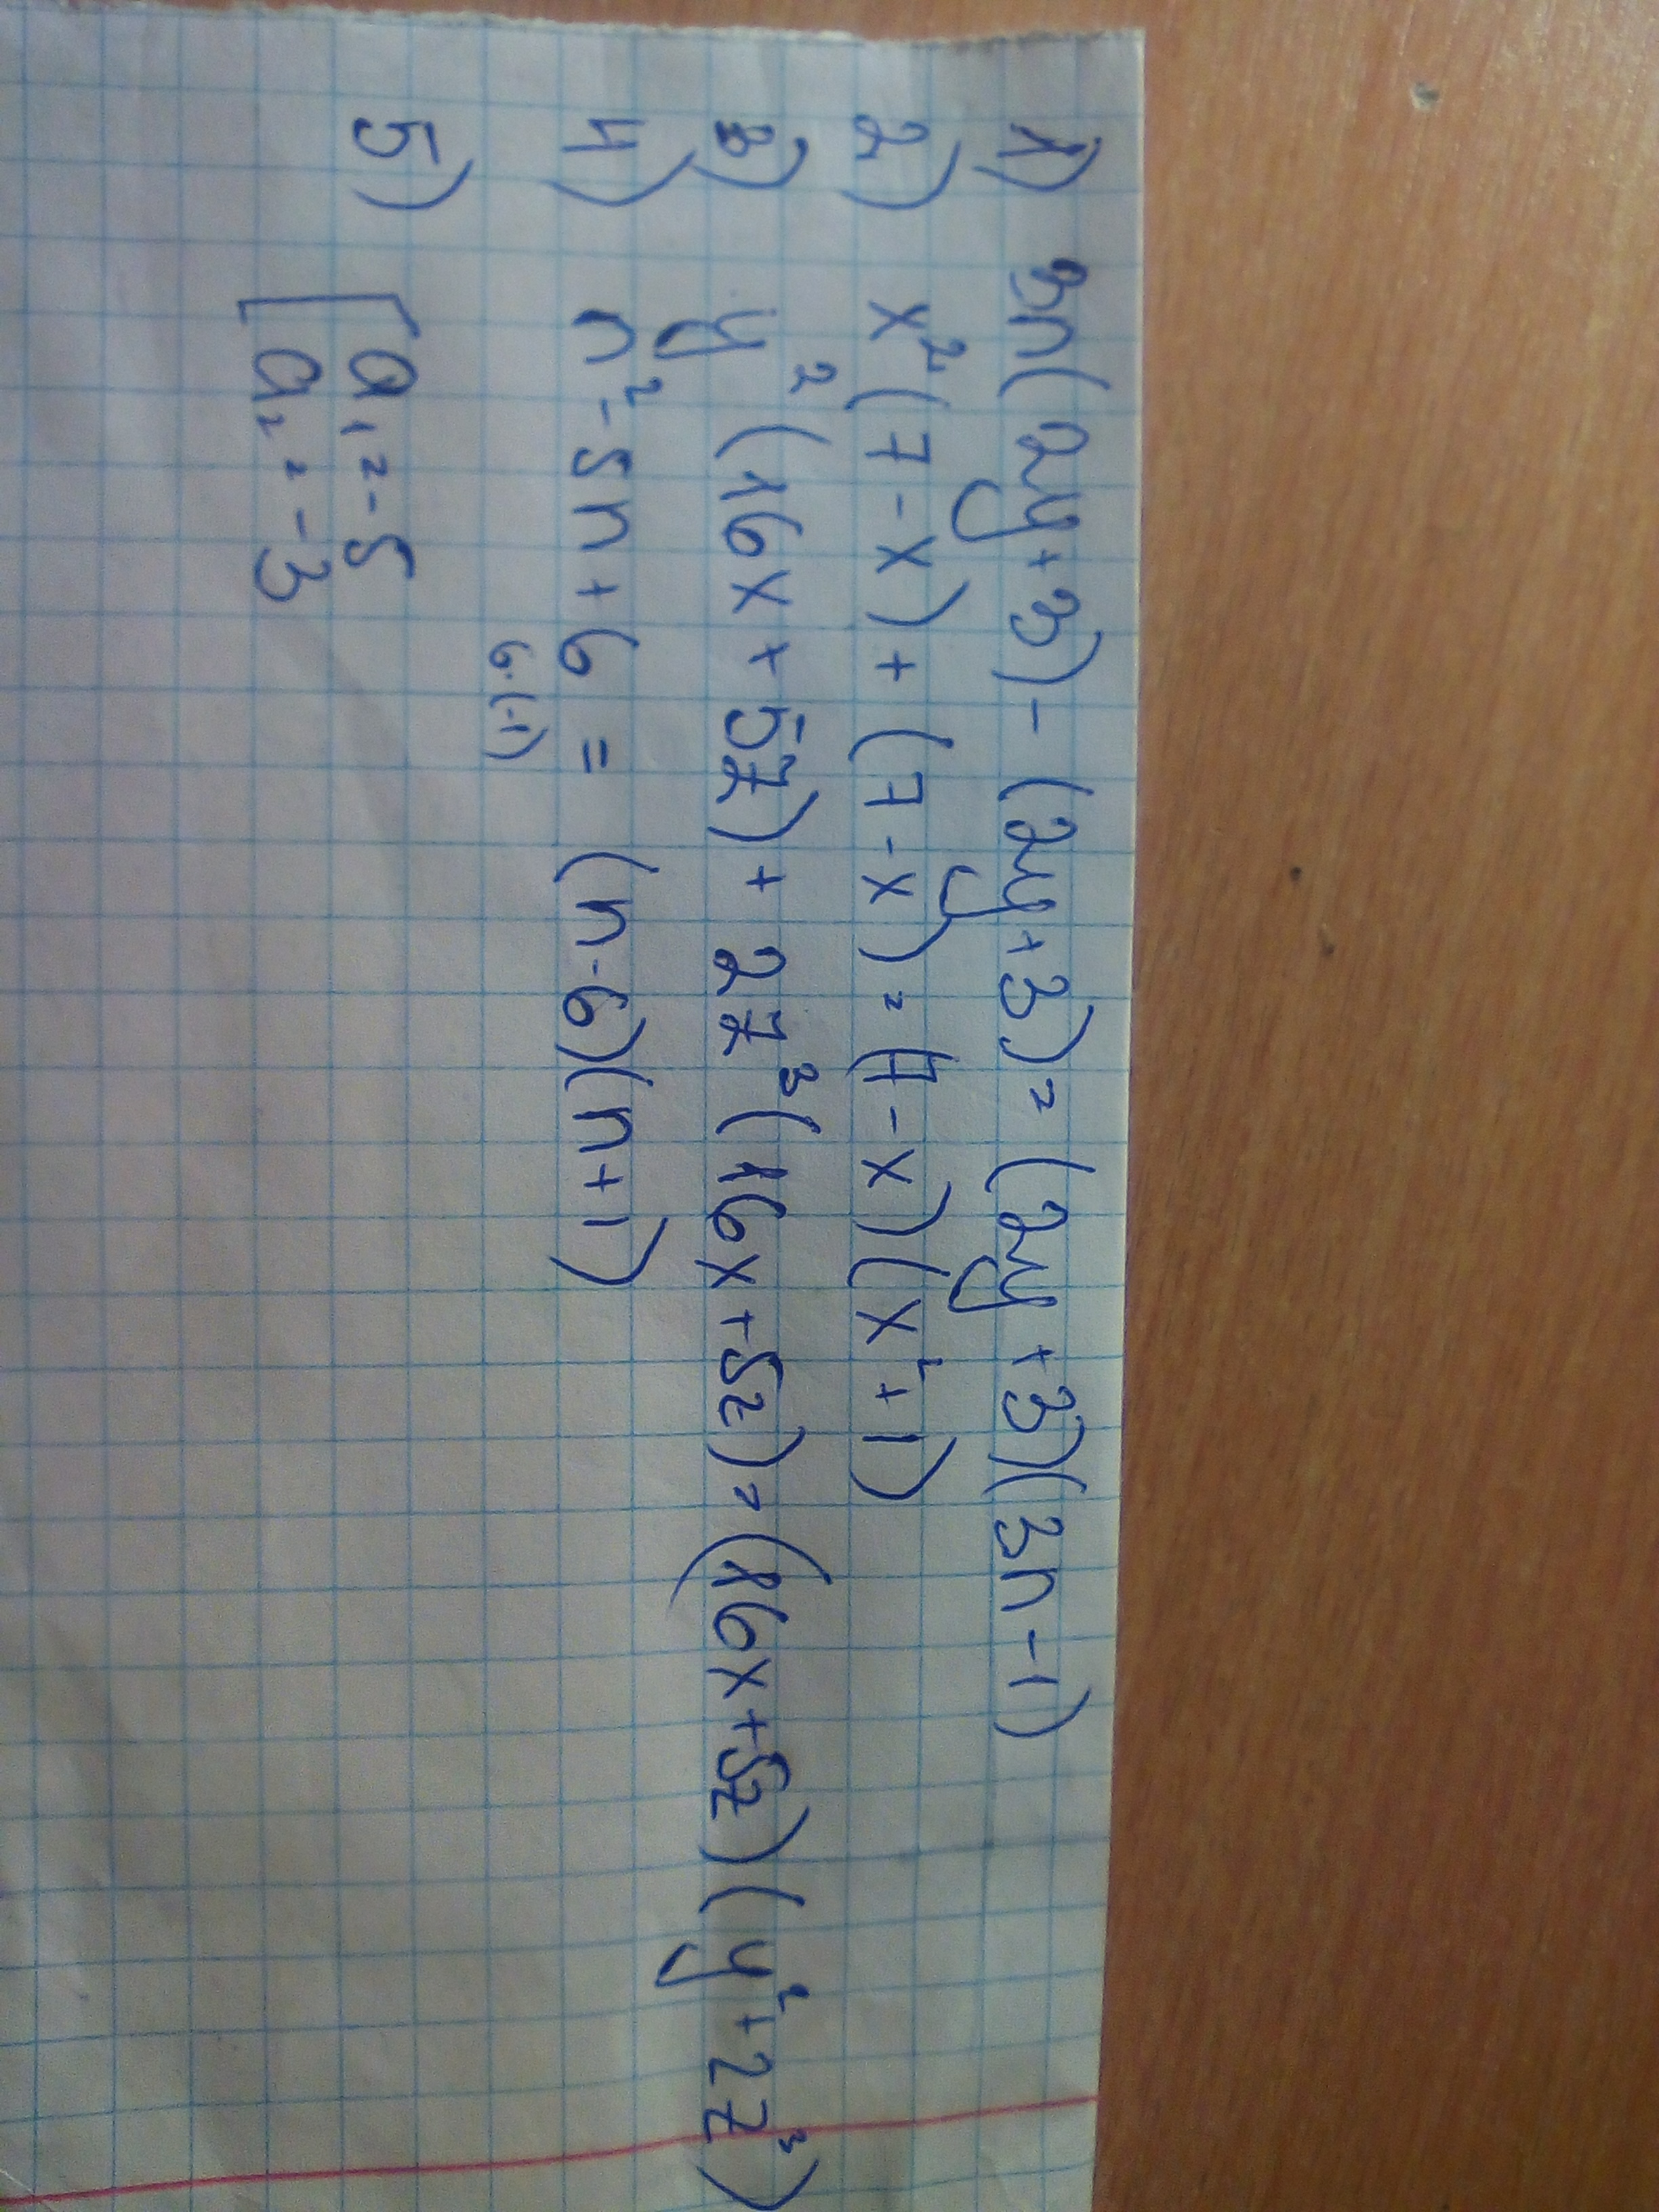 1) 3n(2y+3) - (2y+3) = (2y+3)(3n-1)
2) x²(7-x) + (7-x) = (7-x)(x²+1)
3) y²(16x+5z) + 2z³(16x+5z) = (16x+5z)(y²+2z³)
4) n²-5n+6 = (n-6)(n+1)
6·(-1)
5) [a₁=-5
a₂=-3